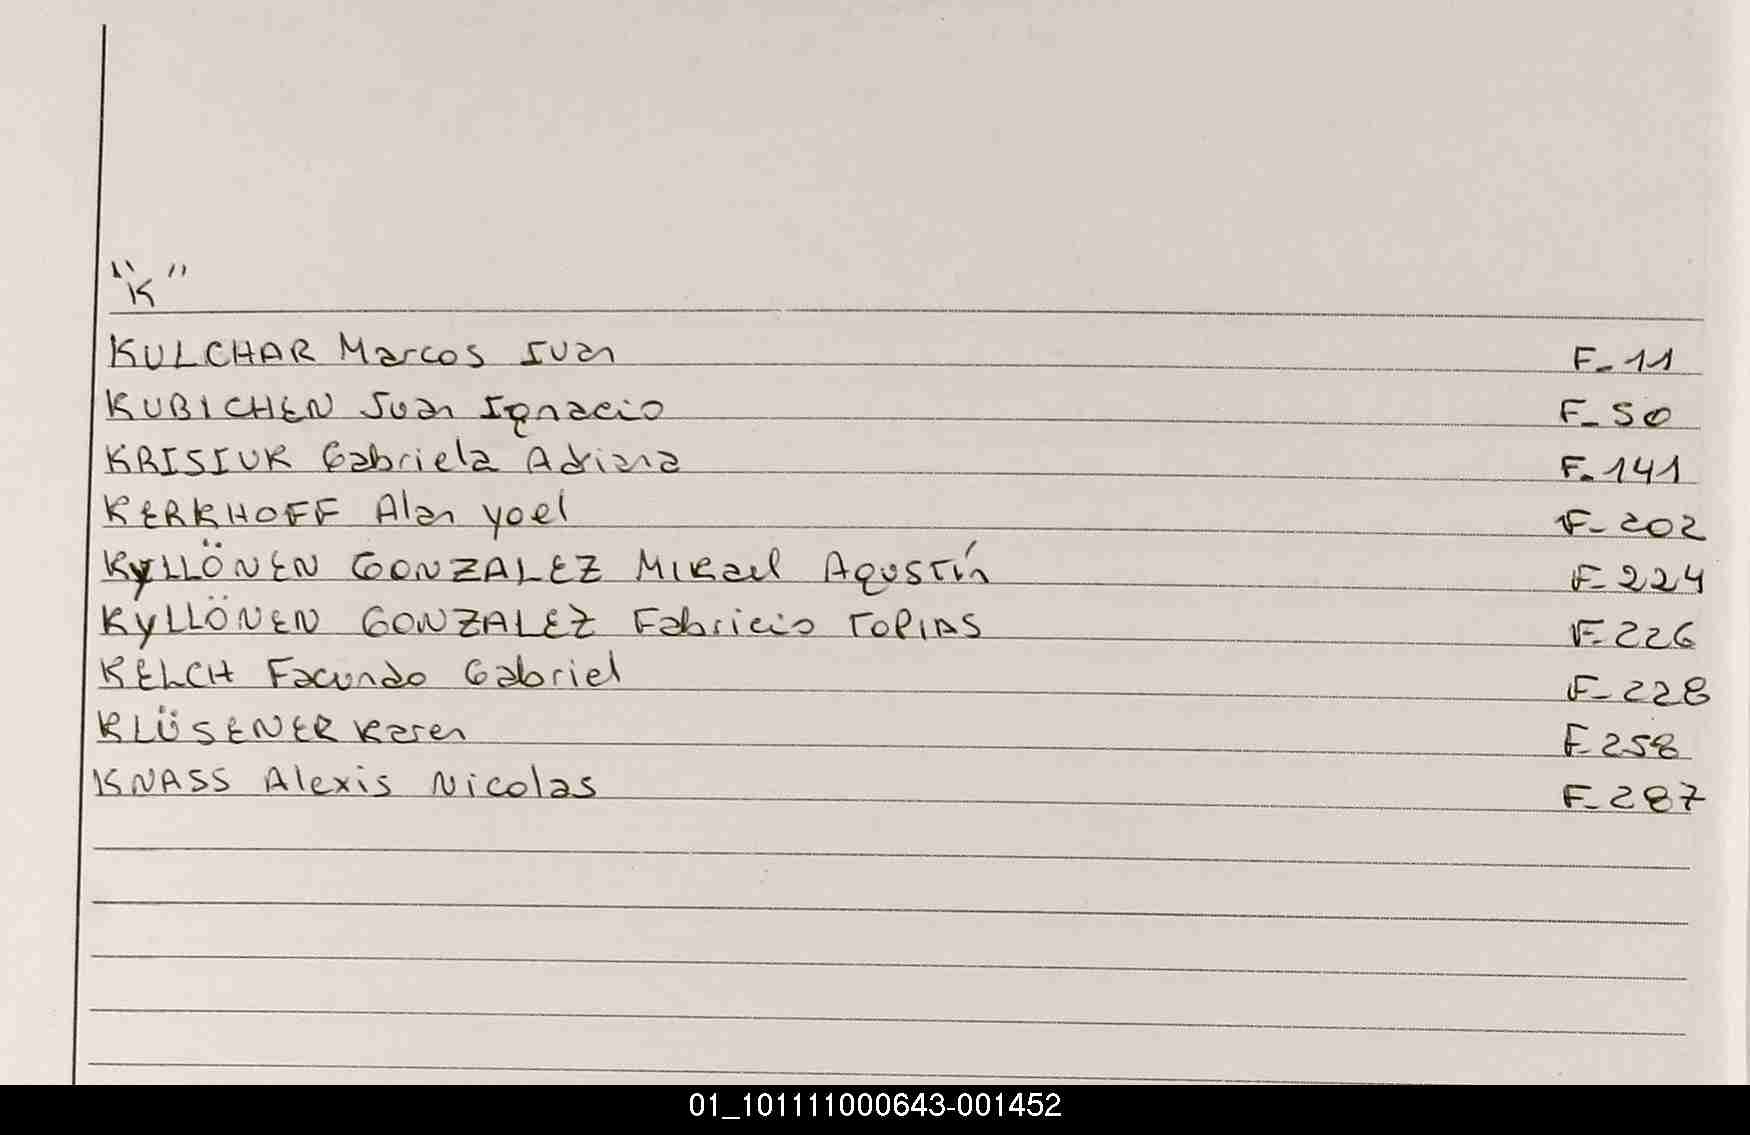 "K"
KULCHAR Marcos Ivan F-11
KUBICHEN Juan Ignacio F-50
KRISIUK Gabriela Adriana F-141
KERKHOFF Alan Yoel F-202
KYLLÖNEN GONZALEZ Mikael Agustín F-224
KYLLÖNEN GONZALEZ Fabricio TOPIAS F-226
KELCH Facundo Gabriel F-228
KLÜSENER Karen F-258
KNASS Alexis Nicolas F-287
01_101111000643-001452